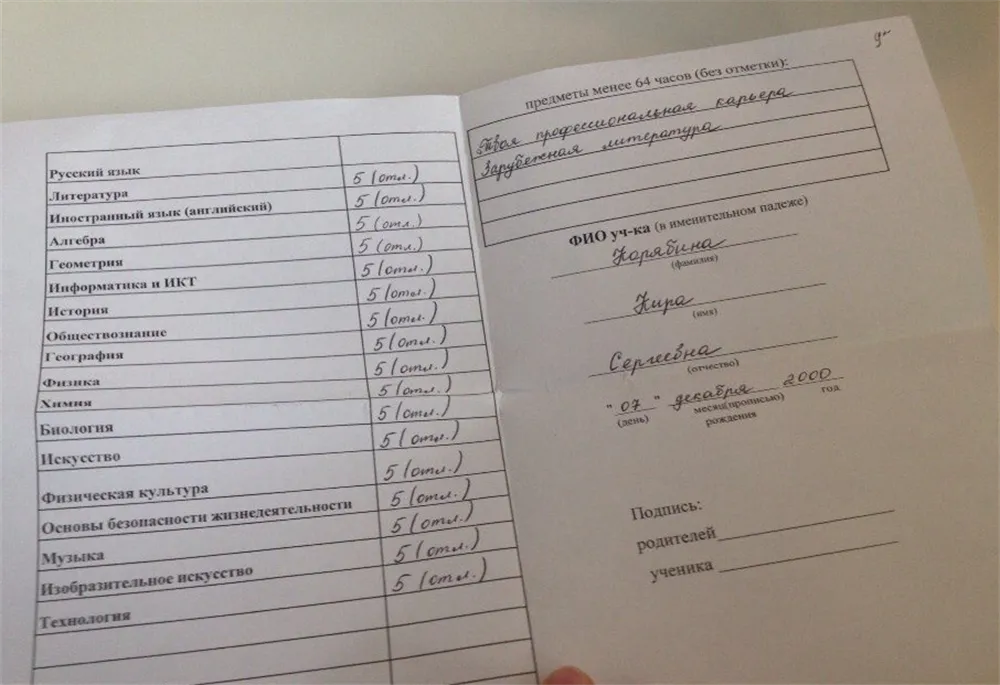 Русский язык 5 (отл.)
Литература 5 (отл.)
Иностранный язык (английский) 5 (отл.)
Алгебра 5 (отл.)
Геометрия 5 (отл.)
Информатика и ИКТ 5 (отл.)
История 5 (отл.)
Обществознание 5 (отл.)
География 5 (отл.)
Физика 5 (отл.)
Химия 5 (отл.)
Биология 5 (отл.)
Искусство 5 (отл.)
Физическая культура 5 (отл.)
Основы безопасности жизнедеятельности 5 (отл.)
Музыка 5 (отл.)
Изобразительное искусство 5 (отл.)
Технология 5 (отл.)
предметы менее 64 часов (без отметки):
Твоя профессиональная карьера
Зарубежная литература
ФИО уч-ка (в именительном падеже)
Корябина
(фамилия)
Кира
(имя)
Сергеевна
(отчество)
" 07 " декабря 2000
(день) месяц(прописью) год
рождения
Подпись:
родителей
ученика